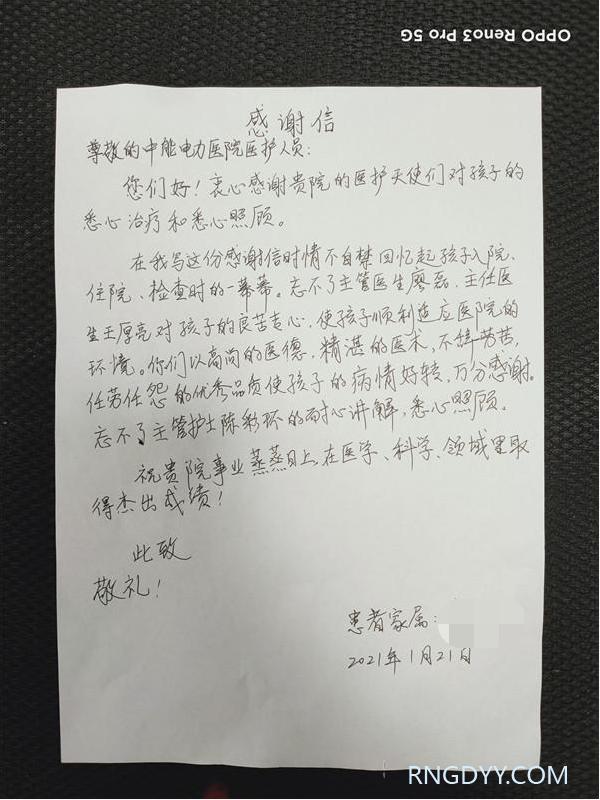 OPPO Reno3 Pro 5G
感谢信
尊敬的中能电力医院医护人员：
您们好！衷心感谢贵院的医护天使们对孩子的
悉心治疗和悉心照顾。
在我写这份感谢信时情不自禁回忆起孩子入院、
住院、检查时的一幕幕。忘不了主管医生廖磊、主任医
生王厚亮对孩子的良苦专心，使孩子顺利适应医院的
环境。你们以高尚的医德，精湛的医术，不辞劳苦，
任劳任怨的优秀品质使孩子的病情好转，万分感谢。
忘不了主管护士陈彩环的耐心讲解，悉心照顾。
祝贵院事业蒸蒸日上，在医学、科学、领域里取
得杰出成绩！
此致
敬礼！
患者家属：
2021年1月21日
RNGDYY.COM